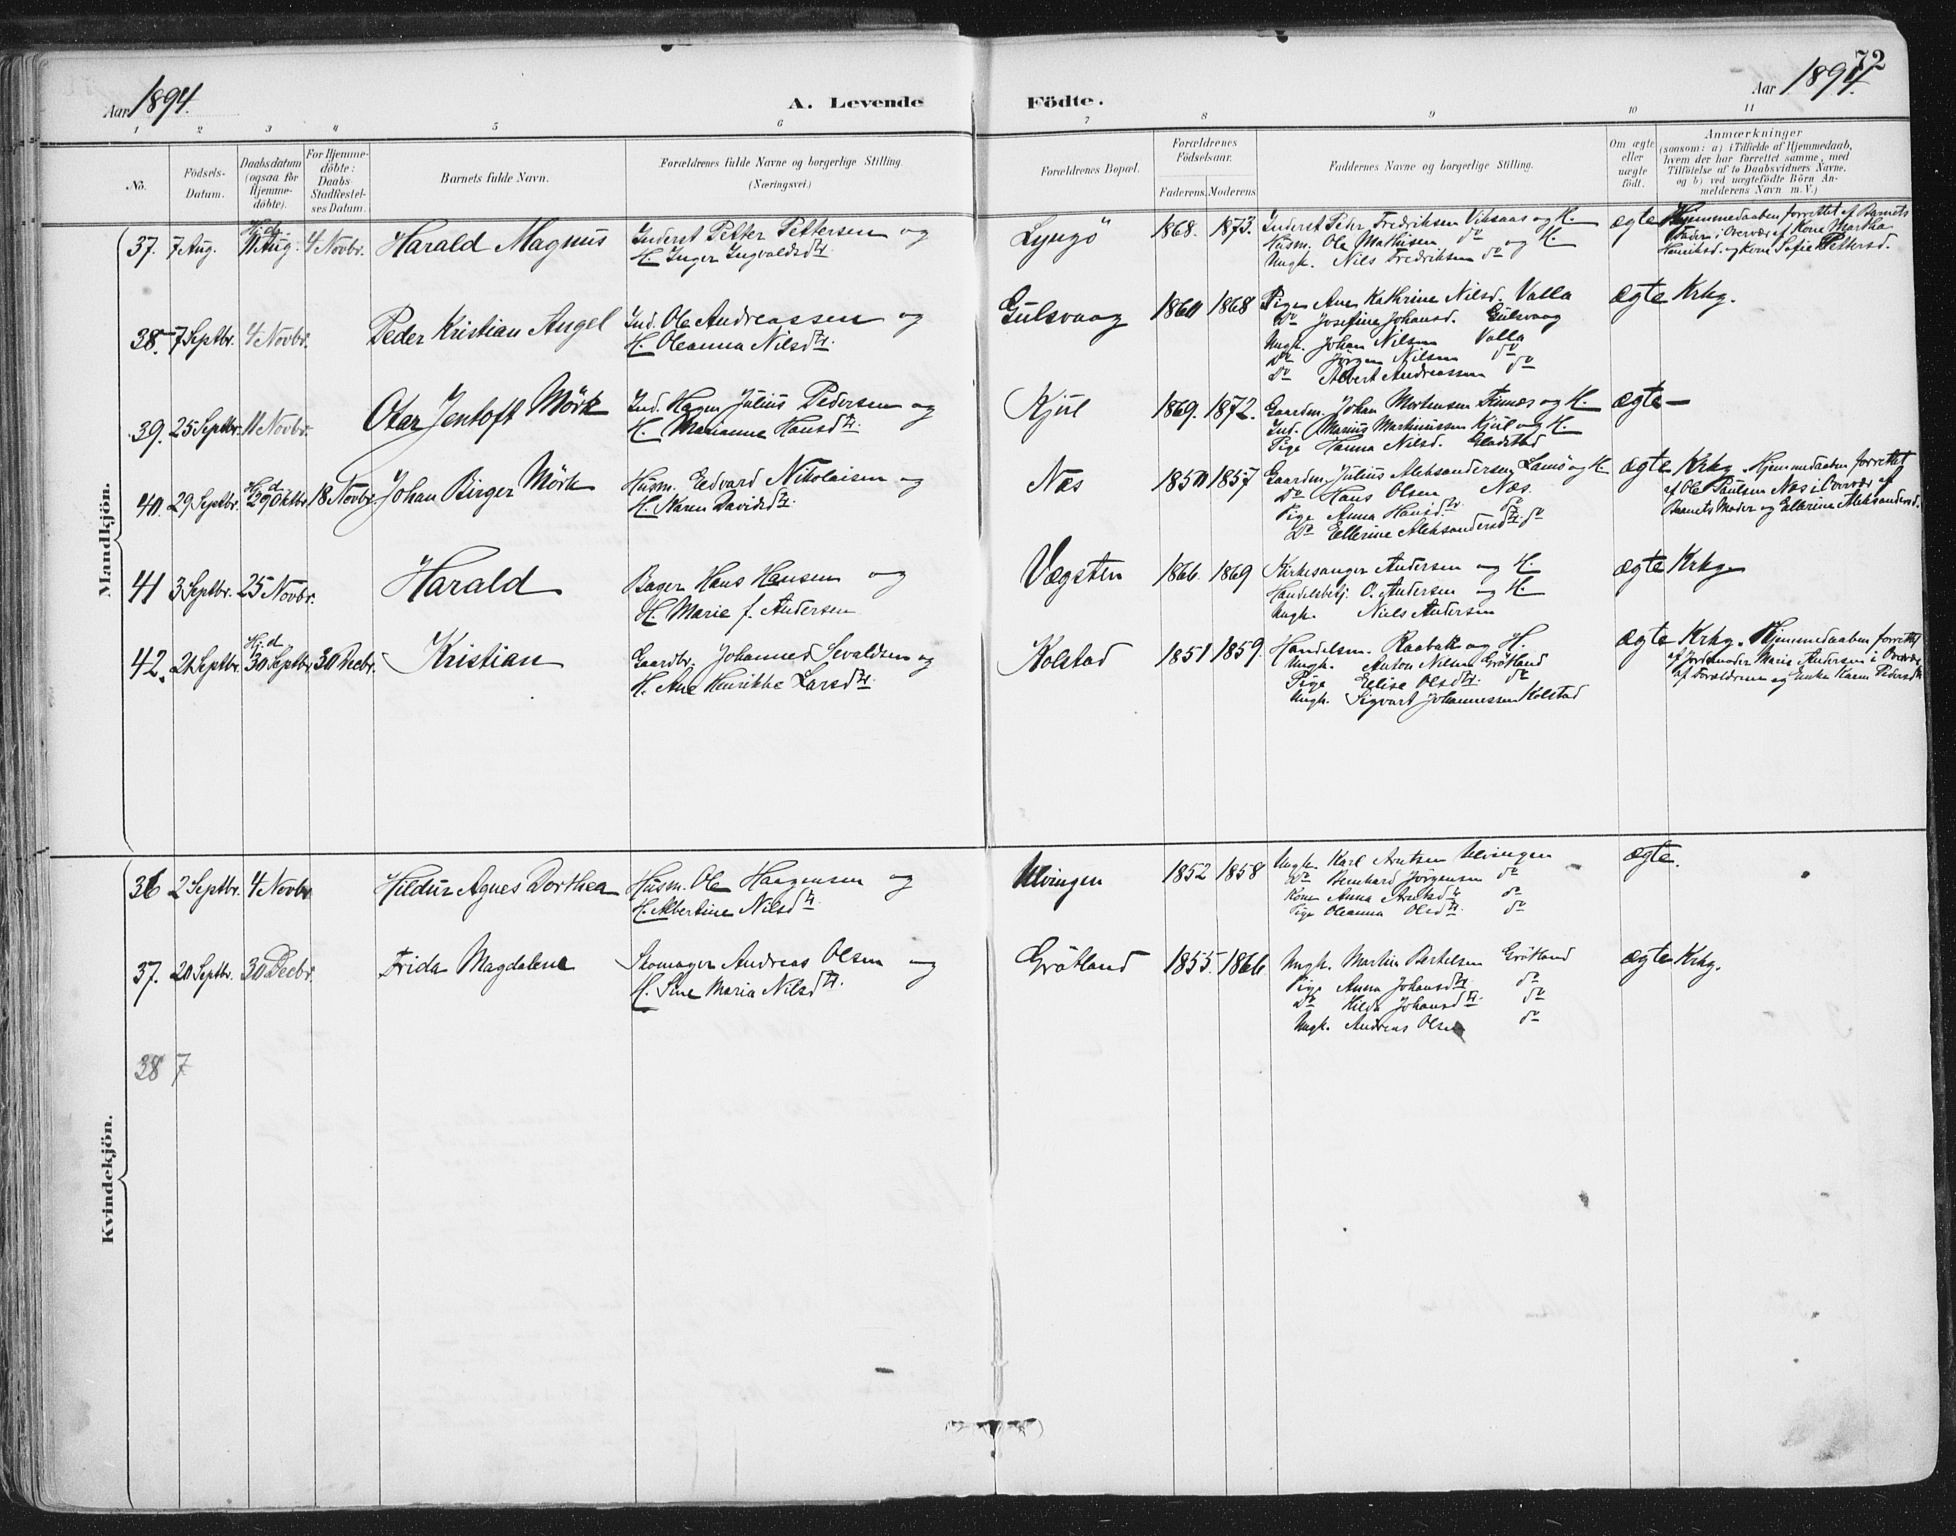 72
Aar 1894.
A. Levende
Födte.
Aar 1894.
1 2 3 4 5 6 7 8 9 10 11
No.
Födsels-Datum.
Daabsdatum (ogsaa for Hjemme-döbte).
For Hjemme-döbte: Daabs-Stadfæstel-ses Datum.
Barnets fulde Navn.
Forældrenes fulde Navne og borgerlige Stilling.
(Næringsvei.)
Forældrenes Bopæl.
Forældrenes Födselsaar.
Faderens. Moderens.
Faddernes Navne og borgerlige Stilling.
Om ægte eller uægte födt.
Anmærkninger
(saasom: a) i Tilfælde af Hjemmedaab,
hvem der har forrettet samme, med
Tilföielse af to Daabsvidners Navne.
og b) ved uægtefödte Börn An-
melderens Navn m. V.)
Mandkjön.
37. 7 Aug. Hj.d. Aug. 4 Novbr. Harald Magnus
Inderst Petter Pettersen og
H. Inger Ingvaldsdtr.
Lyngö 1868. 1873.
Inderst Peder Fredriksen Viksaas og H.
Husm. Ole Mathisen do og H.
Ungk. Nils Fredriksen do
ægte
Hjemmedaaben forrettet af Barnets
Fader i Overvær af Kone Martha
Henriksd. og Kone Sofie Pettersd.
38. 7 Septbr. 4 Novbr. Peder Kristian Angel
Ind. Ole Andreassen og
H. Oleanna Nilsdtr.
Gulsvaag 1860 1868
Pige Ane Kathrine Nilsd. Valla
Do Josefine Johansd. Gulsvaag
Ungk. Johan Nilsen Valla
Do Jørgen Nilsen do
Do Albert Andreassen do
ægte Krkg.
39. 25 Septbr. 11 Novbr. Otar Jentoft Mörk
Ind. Hagen Julius Pedersen og
H. Marianne Hansdtr.
Kjul 1869. 1872.
Gaardm. Johan Mortensen Finnæs og H.
Ind. Marius Martinussen Kjul og H.
Pige Hanna Nilsd. Gladstad
ægte —
40. 29 Septbr. Hj.d. 29 Oktbr. 18 Novbr. Johan Birger Mörk
Husm. Edvard Nikolaisen og
H. Karen Davidsdtr.
Næs 1850 1857
Gaardm. Julius Aleksandersen Lamö og H.
Do Hans Olsen Næs.
Pige Anna Hansdtr. do
Do Ellerine Aleksandersdtr. do
ægte Krkg. Hjemmedaaben forrettet
af Ole Paulsen Næs i Overvær af
Barnets Moder og Ellerine Aleksandersd.
41 3 Septbr. 25 Novbr. Harald
Bager Hans Hansen og
H. Marie f. Andersen
Vægsten 1866. 1869
Kirkesanger Andersen og H.
Handelsbetj. O. Andersen og H.
Ungk. Niels Andersen
ægte Krkg.
42. 21 Septbr. Hj.d. 30 Septbr. 30 Decbr. Kristian
Gaardbr. Johannes Sevaldsen og
H. Ane Henrikke Larsdtr.
Kolstad 1851 1859.
Handelsm. Raabak og H.
Ungk. Anton Nilsen Grötland
Pige Elise Olsdtr. do
Ungk. Sigvart Johannessen Kolstad
ægte Krkg. Hjemmedaaben forrettet
af Jordmoder Maria Andersen i Overvær
af Forældrene og Enke Karen Pedersdtr
Kvindekjön.
36 2 Septbr. 4 Novbr Hildur Agnes Dorthea
Husm. Ole Haagensen og
H. Albertine Nilsdtr.
Ulvingen 1852 1858
Ungk. Karl Arntsen Ulvingen
Do Bernhard Jørgensen do
Kone Anna Arntsdtr do
Pige Oleanna Olsdtr. do
ægte.
37. 20 Septbr. 30 Decbr. Frida Magdalene
Skomager Andreas Olsen og
H. Sine Maria Nilsdtr.
Grötland 1855. 1866
Ungk. Martin Bertelsen Grötland
Pige Anna Johansdtr. do
Do Hilda Johansdtr. do
Ungk. Andreas Olsen do
ægte Krkg.
38 7